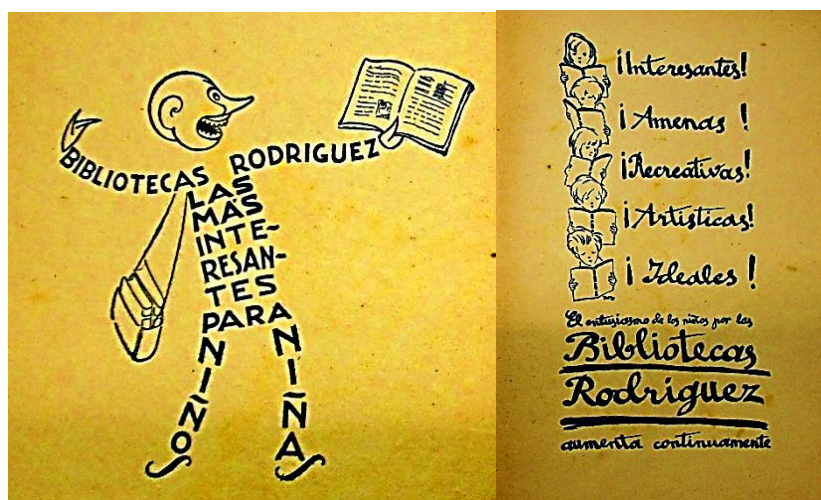 BIBLIOTECAS RODRIGUEZ
LAS
MÁS
INTE-
RESAN-
TES
PARA
NIÑOS
NIÑAS
¡Interesantes!
¡Amenas!
¡Recreativas!
¡Artisticas!
¡Ideales!
El entusiasmo de los niños por las
Bibliotecas
Rodríguez
aumenta continuamente